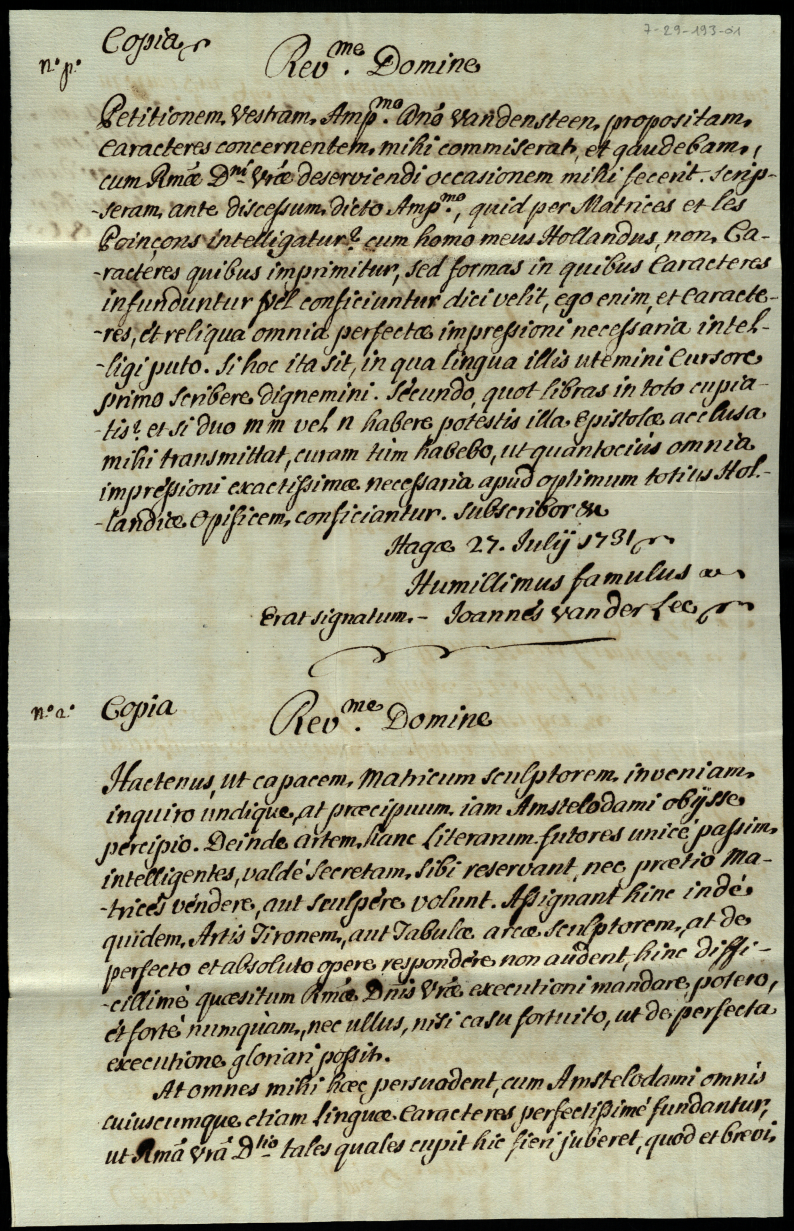 7-29-193-01
Copia
n.º p.º
Rev.me Domine
Petitionem Vestram Amp.mo Dnō Vandensteen, propositam,
Caracteres concernentem, mihi commiserat, et gaudebam,
cum Rmæ D.ni Vræ deserviendi occasionem mihi fecerit. scrip-
-seram, ante discessum, dicto Amp.mo, quid per Matrices et les
Poinçons intelligatur? cum homo meus Hollandus, non Ca-
-ractéres quibus imprimitur, sed formas in quibus Caracteres
infunduntur vel conficiuntur dici velit, ego enim, et Caracte-
-res, et reliqua omnia perfectæ impressioni necessaria intel-
-ligi puto. Si hoc ita sit, in qua lingua illis utemini Cursore
primo scribere dignemini. Sécundo, quot libras in toto cupia-
-tis? et si duo m m vel n habere potestis illa Epistolæ acclusa
mihi transmittat, curam tùm habebo, ut quantociùs omnia
impréssioni exactissimæ necessaria apud optimum totius Hol-
-landiæ Opificem, conficiantur. Subscribor &
Hagæ 27. Julij 1731
Humillimus famulus
Erat signatum. - Joannes van der Lee
n.º 2.º
Copia
Rev.me Domine
Hactenus, ut capacem, Matricum sculptorem, inveniam,
inquiro undique, at præcipuum iam Amstelodami obijsse
percipio. Deinde artem, hanc Literarum futores unicè passim,
intelligentes, valdé Secretam, sibi reservant, nec prætio Ma-
-trices véndere, aut sculpére volunt. Assignant hinc indé
quidem, Artis Tironem, aut Tabulæ arcæ sculptorem, at de
perfecto et absoluto opere respondére non audent, hinc diffi-
-cillimé quæsitum Rmæ Dnis Vræ executioni mandare potero,
ét forté numquàm, nec ullus, nisi casu fortuito, ut de perfecta
executione gloriari possit.
At omnes mihi hæc persuadent, cum Amstelodami omnis
cuiuscumque etiam Linguæ Caracteres perfectissimé fundantur,
ut Rmā Vrā D.tio tales quales cupit hic fieri juberet, quod et brevi